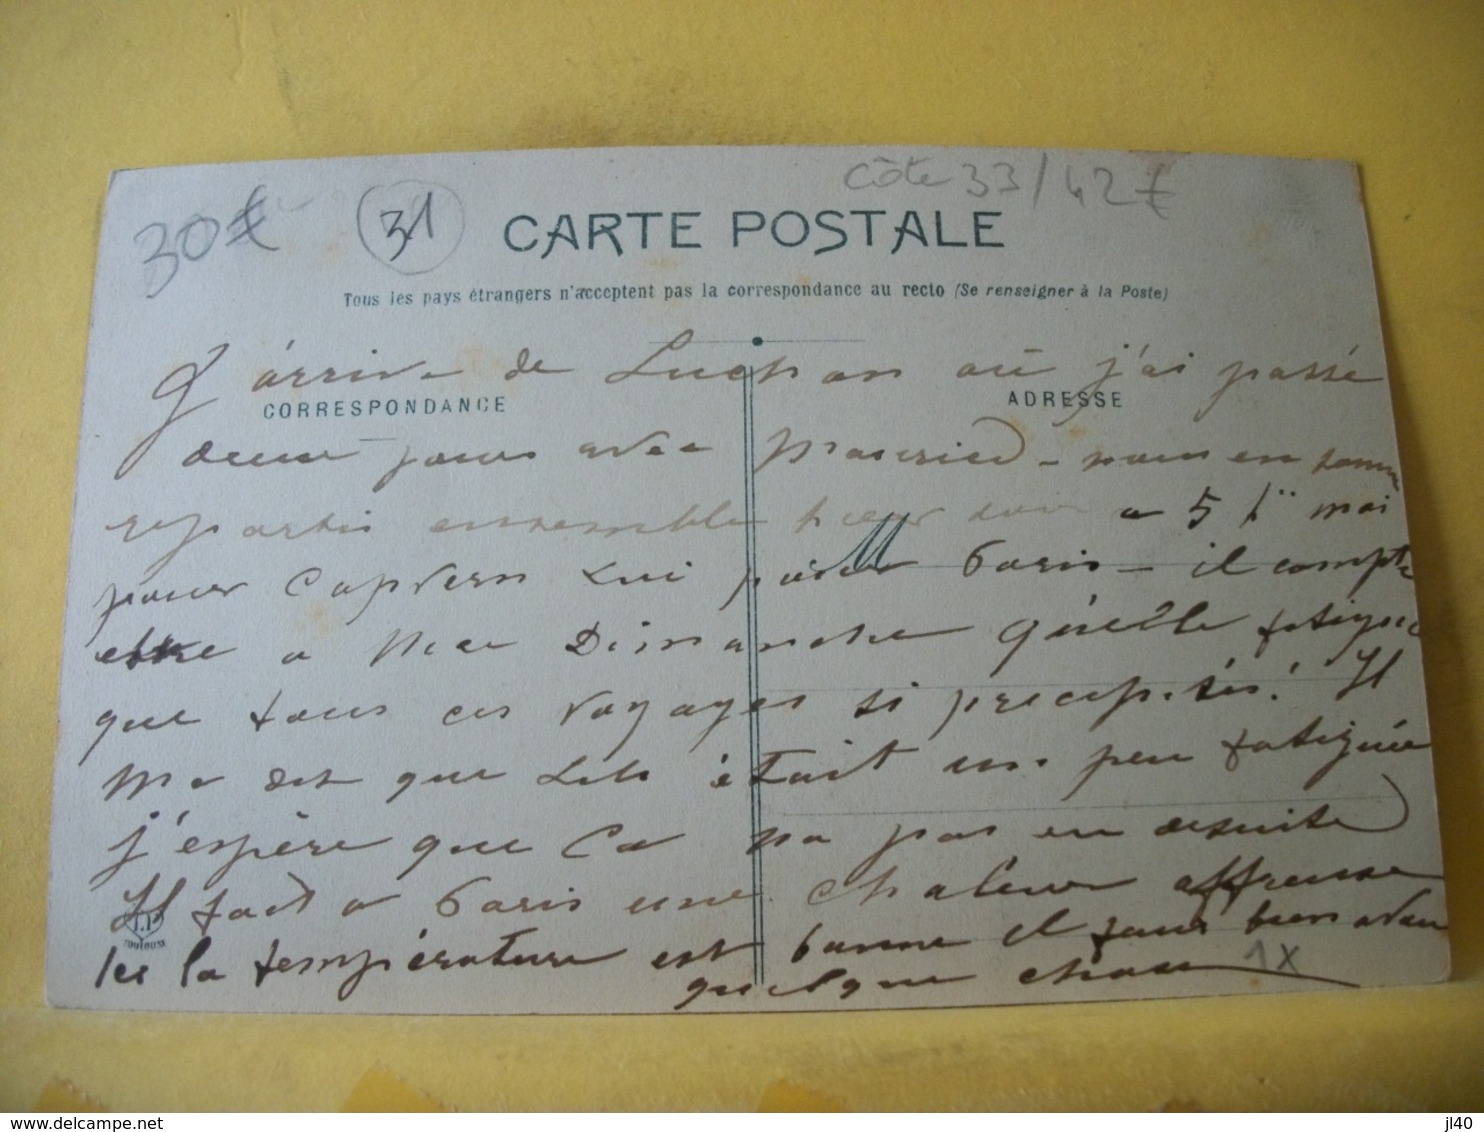 30€
31
côte 33/42€
CARTE POSTALE
Tous les pays étrangers n'acceptent pas la correspondance au recto (Se renseigner à la Poste)
J'arrive de Luchon où j'ai passé
CORRESPONDANCE
ADRESSE
deux jours avec Maurice - nous en sommes
repartis ensemble hier soir a 5 h moi
pour Capvern Lui pour Paris - il compte
être a Nice Dimanche qu'elle fatigue
que tous ces voyages si précipités! Il
M
me dit que Lili était un peu fatiguée
j'espère que Ca na pas eu de suite
Il fait a Paris une chaleur affreuse
ici la température est bonne il faut bien avoir
quelque chose
TOULOUSE
1x
www.delcampe.net
jl40